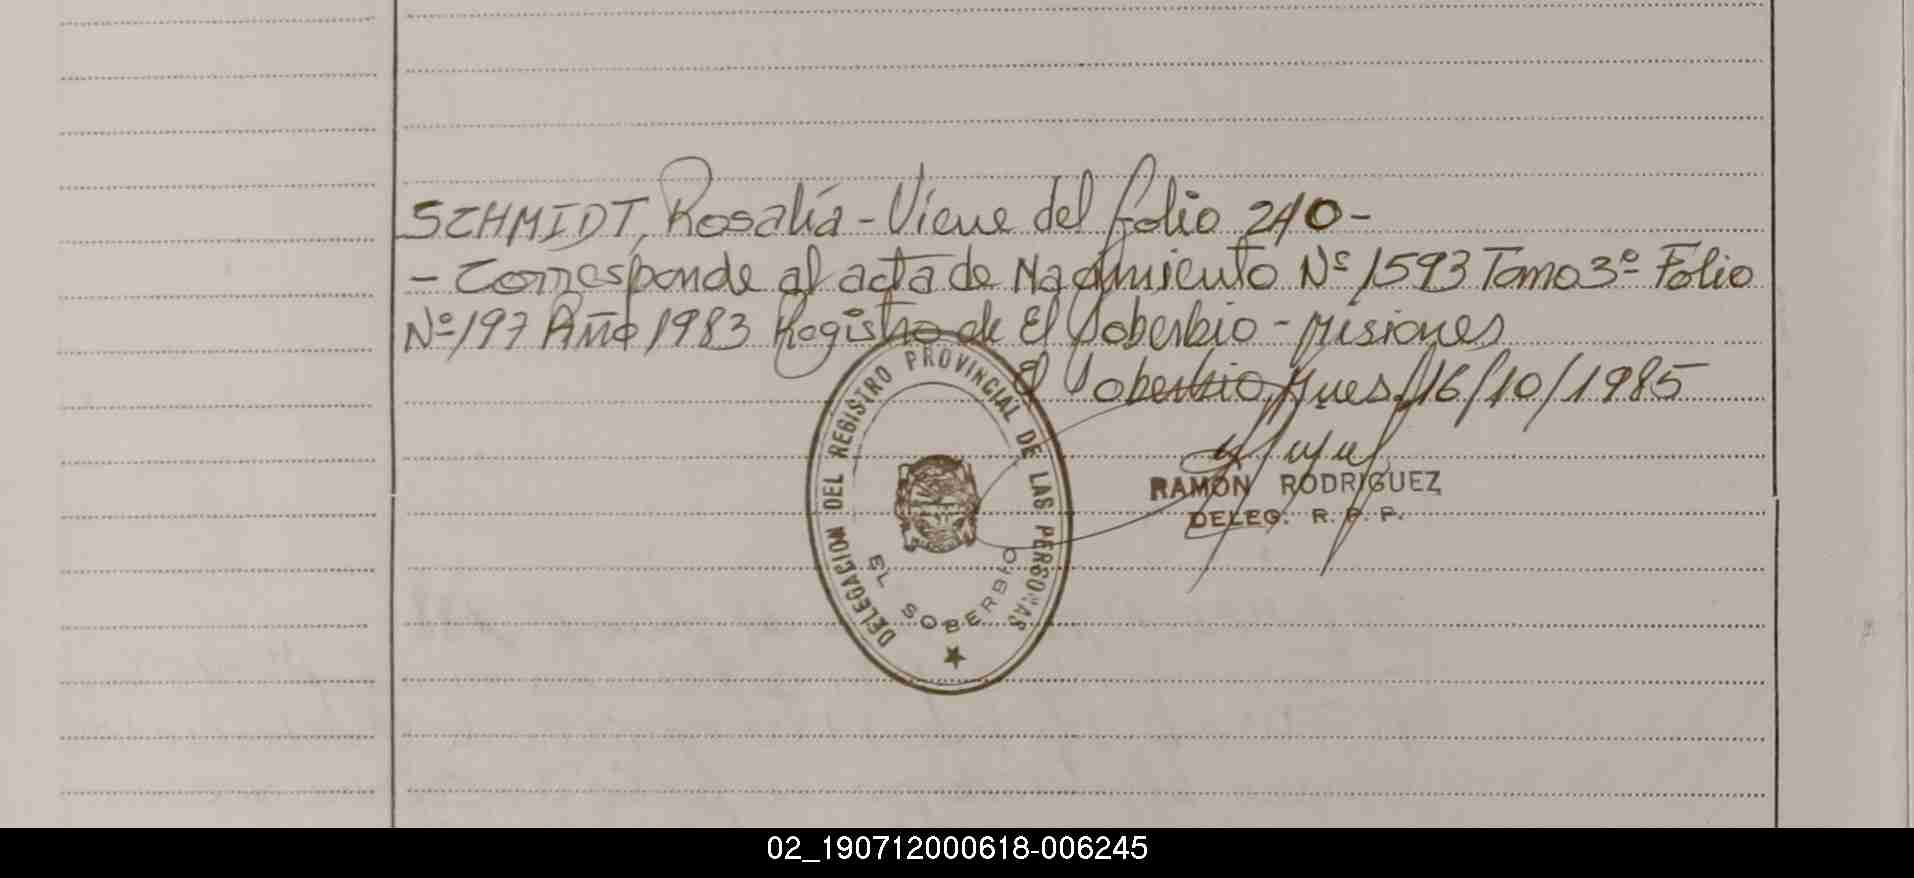 SCHMIDT, Rosalía - Viene del folio 240 -
- Corresponde al acta de Nacimiento Nº 1593 Tomo 3º Folio
Nº 197 Año 1983 Registro de El Soberbio - Misiones
El Soberbio, Mnes. 16/10/1985
RAMON RODRIGUEZ
DELEG. R. P. P.
DELEGACION DEL REGISTRO PROVINCIAL DE LAS PERSONAS
EL SOBERBIO
02_190712000618-006245